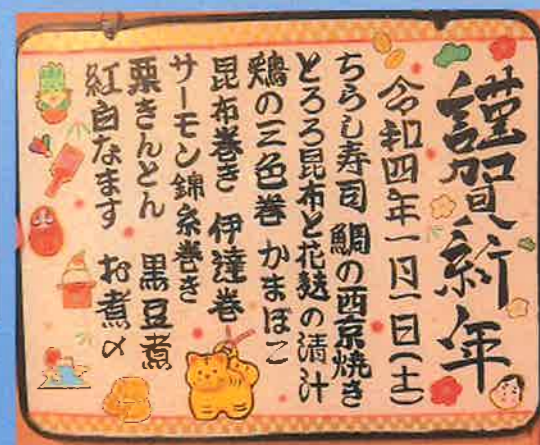 謹賀新年
令和四年一月一日(土)
ちらし寿司 鯛の西京焼き
とろろ昆布と花麸の清汁
鶏の三色巻 かまぼこ
昆布巻き 伊達巻
サーモン錦糸巻き
栗きんとん 黒豆煮
紅白なます お煮〆